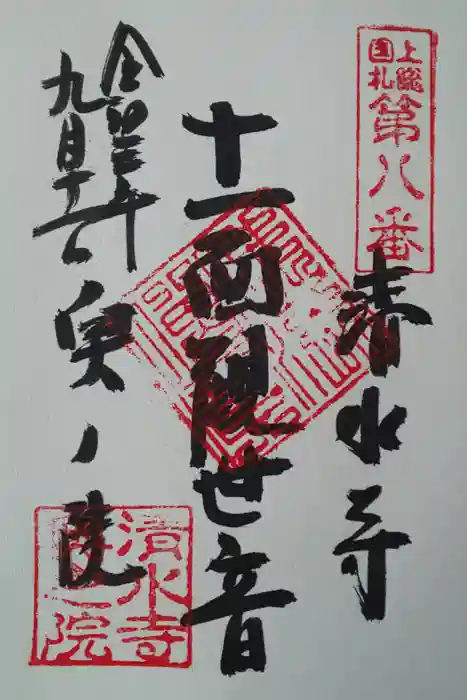 上総
国札
第八番
清水寺
十一面観世音
令和三年
九月
奥ノ院
清水寺
奥之院